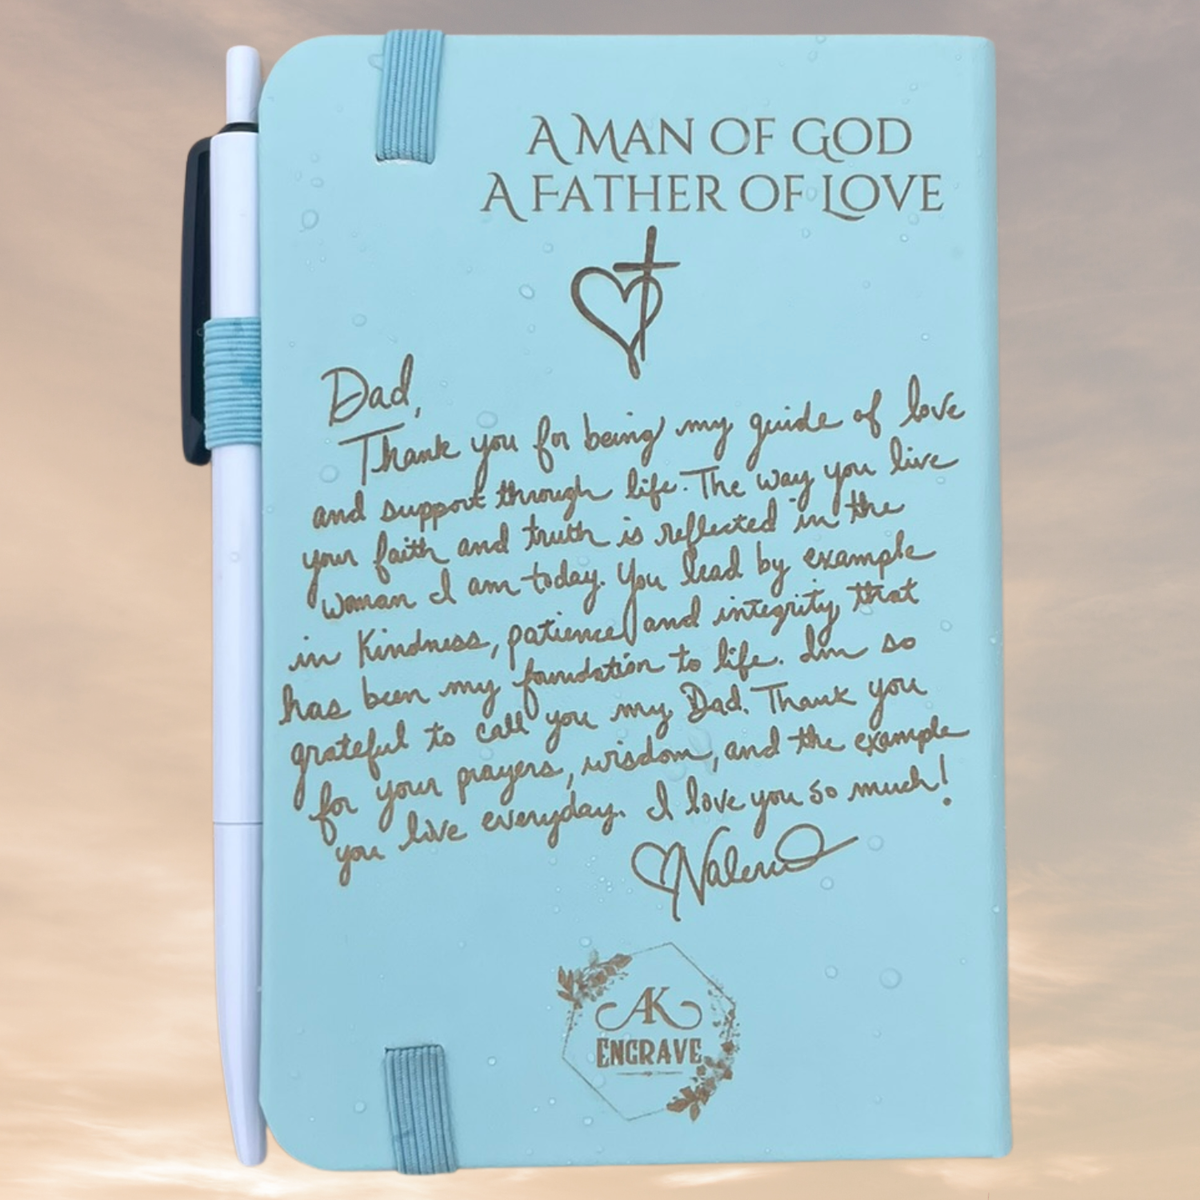 A MAN OF GOD
A FATHER OF LOVE
Dad,
Thank you for being my guide of love
and support through life. The way you live
your faith and truth is reflected in the
woman I am today. You lead by example
in kindness, patience and integrity that
has been my foundation to life. Im so
grateful to call you my Dad. Thank you
for your prayers, wisdom, and the example
you live everyday. I love you so much!
♡Valerie
AK
ENGRAVE